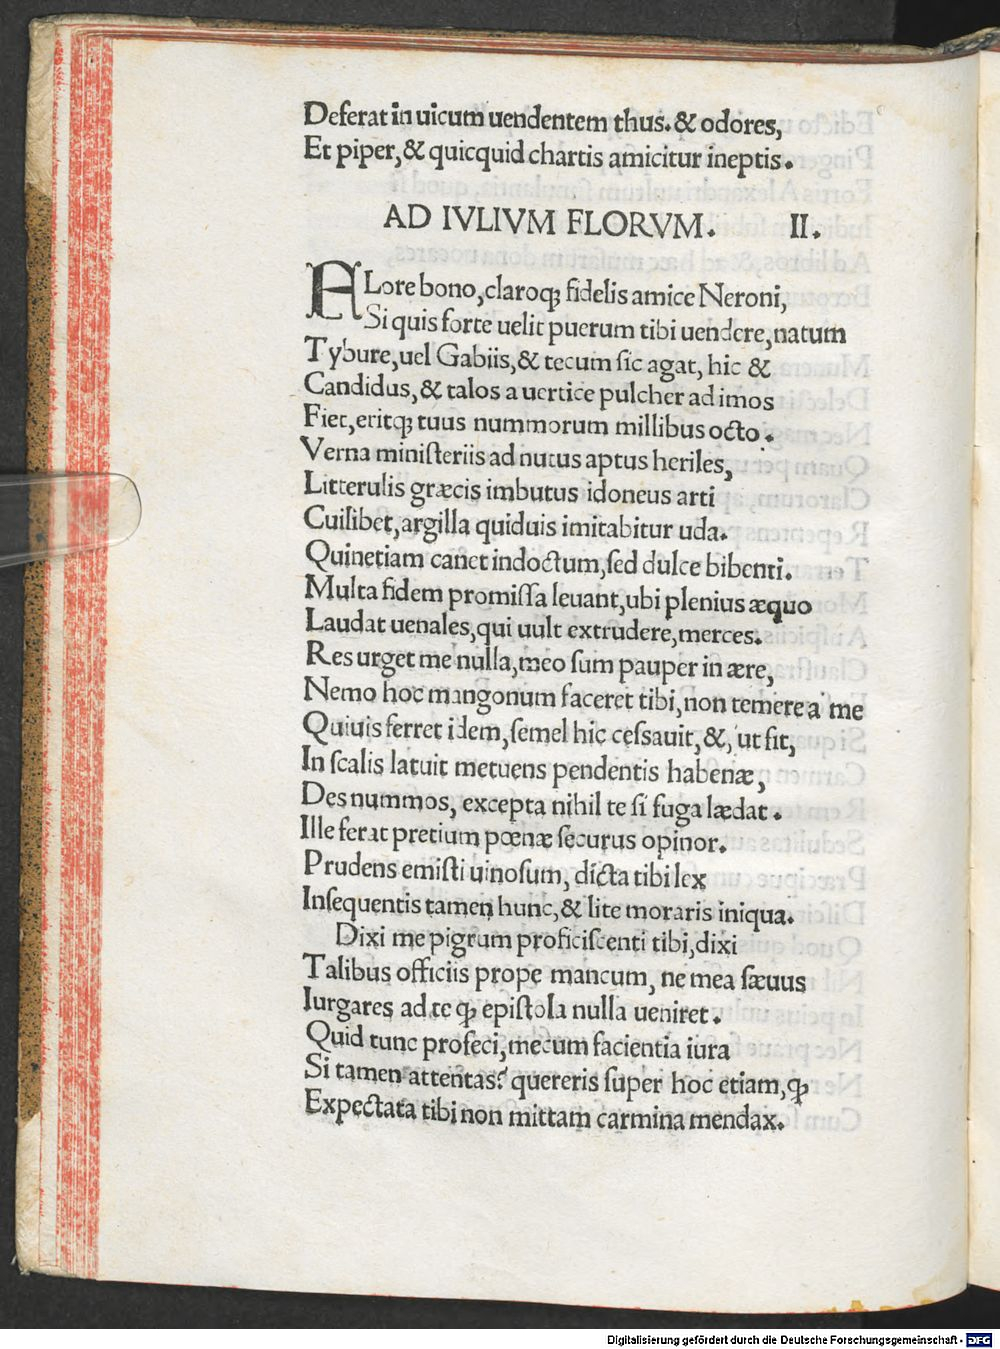 Deferat in uicum uendentem thus. & odores,
Et piper, & quicquid chartis amicitur ineptis.
AD IVLIVM FLORVM. II.
ALore bono, claroq; fidelis amice Neroni,
Si quis forte uelit puerum tibi uendere, natum
Tybure, uel Gabiis, & tecum sic agat, hic &
Candidus, & talos a uertice pulcher ad imos
Fiet, eritq; tuus nummorum millibus octo.
Verna ministeriis ad nutus aptus heriles,
Litterulis græcis imbutus idoneus arti
Cuilibet, argilla quiduis imitabitur uda.
Quinetiam canet indoctum, sed dulce bibenti.
Multa fidem promissa leuant, ubi plenius æquo
Laudat uenales, qui uult extrudere, merces.
Res urget me nulla, meo sum pauper in ære,
Nemo hoc mangonum faceret tibi, non temere a me
Quiuis ferret idem, semel hic cessauit, &, ut fit,
In scalis latuit metuens pendentis habenæ,
Des nummos, excepta nihil te si fuga lædat.
Ille ferat pretium pœnæ securus opinor.
Prudens emisti uinosum, dicta tibi lex
Insequentis tamen hunc, & lite moraris iniqua.
Dixi me pigrum proficiscenti tibi, dixi
Talibus officiis prope mancum, ne mea sæuus
Iurgares ad te ꝙ epistola nulla ueniret.
Quid tunc profeci, mecum facientia iura
Si tamen attentas? quereris super hoc etiam, ꝙ
Expectata tibi non mittam carmina mendax.
Digitalisierung gefördert durch die Deutsche Forschungsgemeinschaft - DFG